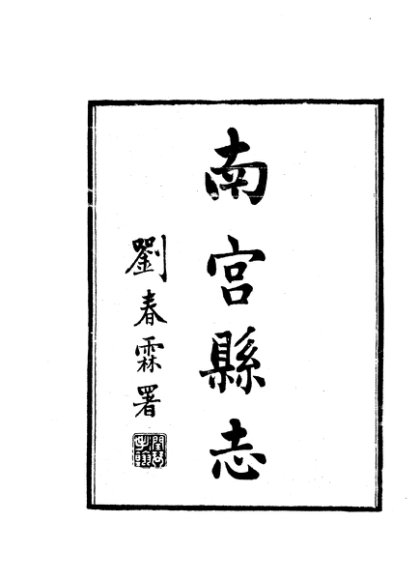 南宮縣志
劉春霖署